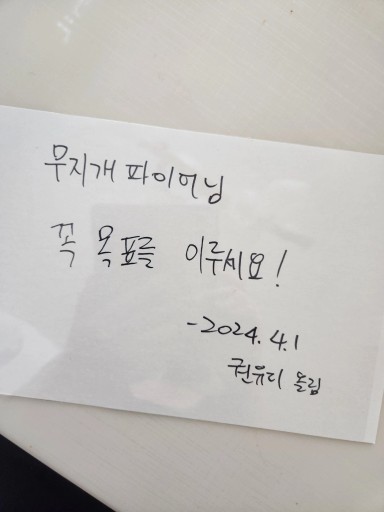 무지개 파이어님
꼭 목표를 이루세요!
-2024.4.1
권유디 올림